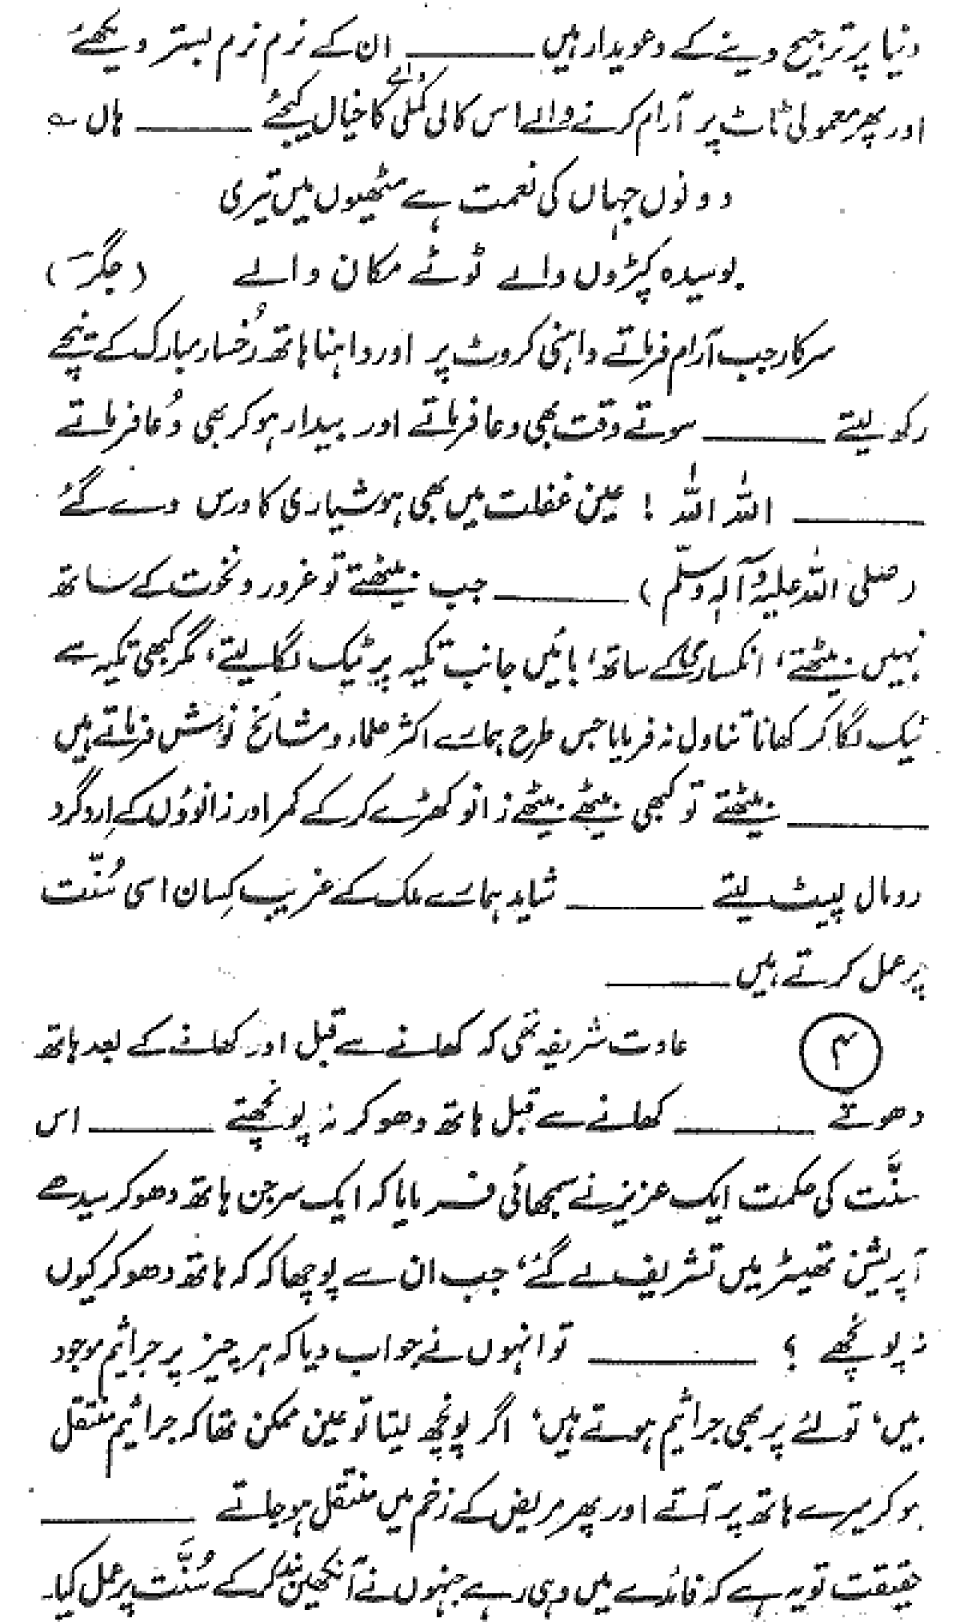 دنیا پر ترجیح دینے کے دعویدار ہیں ـــــــــ ان کے نرم نرم بستر دیکھئے
اور پھر معمولی ٹاٹ پر آرام کرنے والے اس کالی کملی والے کا خیال کیجئے ـــــــــ ہاں ؎
دونوں جہاں کی نعمت ہے مٹھیوں میں تیری
بوسیدہ کپڑوں والے ٹوٹے مکان والے (جگرؔ)
سرکار جب آرام فرماتے داہنی کروٹ پر اور داہنا ہاتھ رُخسار مبارک کے نیچے
رکھ لیتے ـــــــــ سوتے وقت بھی دعا فرماتے اور بیدار ہو کر بھی دُعا فرماتے
ـــــــــ اللہ اللہ ! عین غفلت میں بھی ہوشیاری کا درس دے گئے
(صلی اللہ علیہ وآلہٖ وسلّم) ـــــــــ جب بیٹھتے تو غرور و نخوت کے ساتھ
نہیں بیٹھتے، انکساری کے ساتھ، بائیں جانب تکیہ پر ٹیک لگا لیتے، مگر کبھی تکیہ سے
ٹیک لگا کر کھانا تناول نہ فرمایا جس طرح ہمارے اکثر علماء و مشائخ نوش فرماتے ہیں
ـــــــــ بیٹھتے تو کبھی بیٹھے بیٹھے زانو کھڑے کر کے کمر اور زانوؤں کے اِردگرد
رومال لپیٹ لیتے ـــــــــ شاید ہمارے ملک کے غریب کسان اسی سُنّت
پر عمل کرتے ہیں ـــــــــ
۴ عادت شریفہ تھی کہ کھانے سے قبل اور کھانے کے بعد ہاتھ
دھوتے ـــــــــ کھانے سے قبل ہاتھ دھو کر نہ پونچھتے ـــــــــ اس
سنّت کی حکمت ایک عزیز نے سمجھائی فرمایا کہ ایک سرجن ہاتھ دھو کر سیدھے
آپریشن تھیٹر میں تشریف لے گئے، جب ان سے پوچھا کہ کہ ہاتھ دھو کر کیوں
نہ پونچھے ؟ ـــــــــ تو انہوں نے جواب دیا کہ ہر چیز پر جراثیم موجود
ہیں، تولئے پر بھی جراثیم ہوتے ہیں، اگر پونچھ لیتا تو عین ممکن تھا کہ جراثیم منتقل
ہو کر میرے ہاتھ پر آتے اور پھر مریض کے زخم میں منتقل ہو جاتے ـــــــــ
حقیقت تو یہ ہے کہ فائدے میں وہی رہے جنہوں نے آنکھیں بند کر کے سُنَّت پر عمل کیا۔